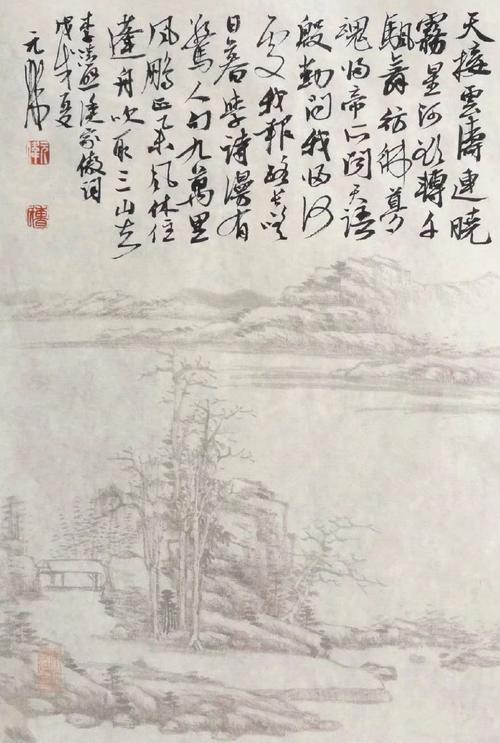 天接雲濤連曉
霧星河欲轉千
颿舞彷彿夢
魂歸帝所聞天語
殷勤問我歸何
處我報路長嗟
日暮學詩漫有
驚人句九萬里
風鵬正舉风休住
蓬舟吹取三山去
李清照漁家傲詞
戊戌夏
元